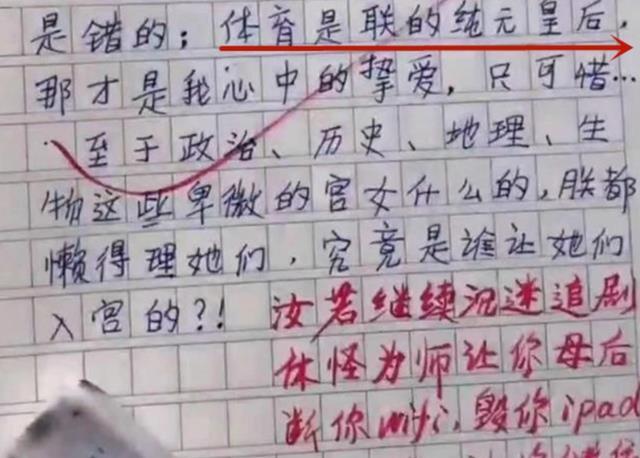 是错的；体育是联的纯元皇后，
那才是我心中的挚爱，只可惜…
至于政治、历史、地理、生
物这些卑微的宫女什么的，朕都
懒得理她们，究竟是谁让她们
入宫的？！汝若继续沉迷追剧
休怪为师让你母后
断你wifi，毁你ipad